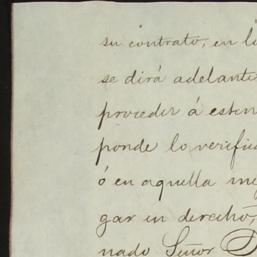 su contrato, en l
se dirá adelante
proceder á exten
ponde lo verific
ó en aquella me
gar en derecho,
nado Señor D